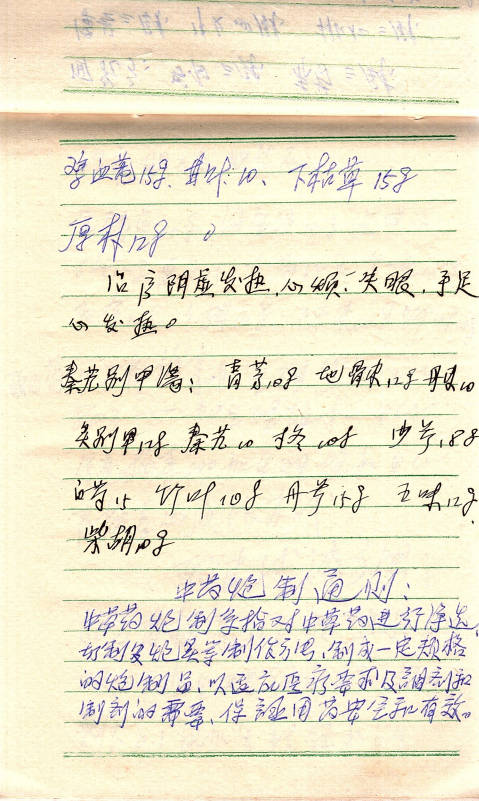 鸡血花15g. 艹叶10、下枯草 15g
厚朴12g 。
治疗阴虚发热,心烦,失眠,手足
心发热。
秦艽别甲汤:青蒿10g 地骨皮12g 丹皮10
炙别甲12g 秦艽10 10g 沙芩18g
15 竹叶10g 丹芩15g 五味12g
柴胡10g
中药炮制通则:
中草药炮制是指对中草药进行净选、
切制及炮炙等制作方法,制成一定规格
的炮制品,以适应医疗要求及調剂和
制剂的需要,保証用药安全和有效。